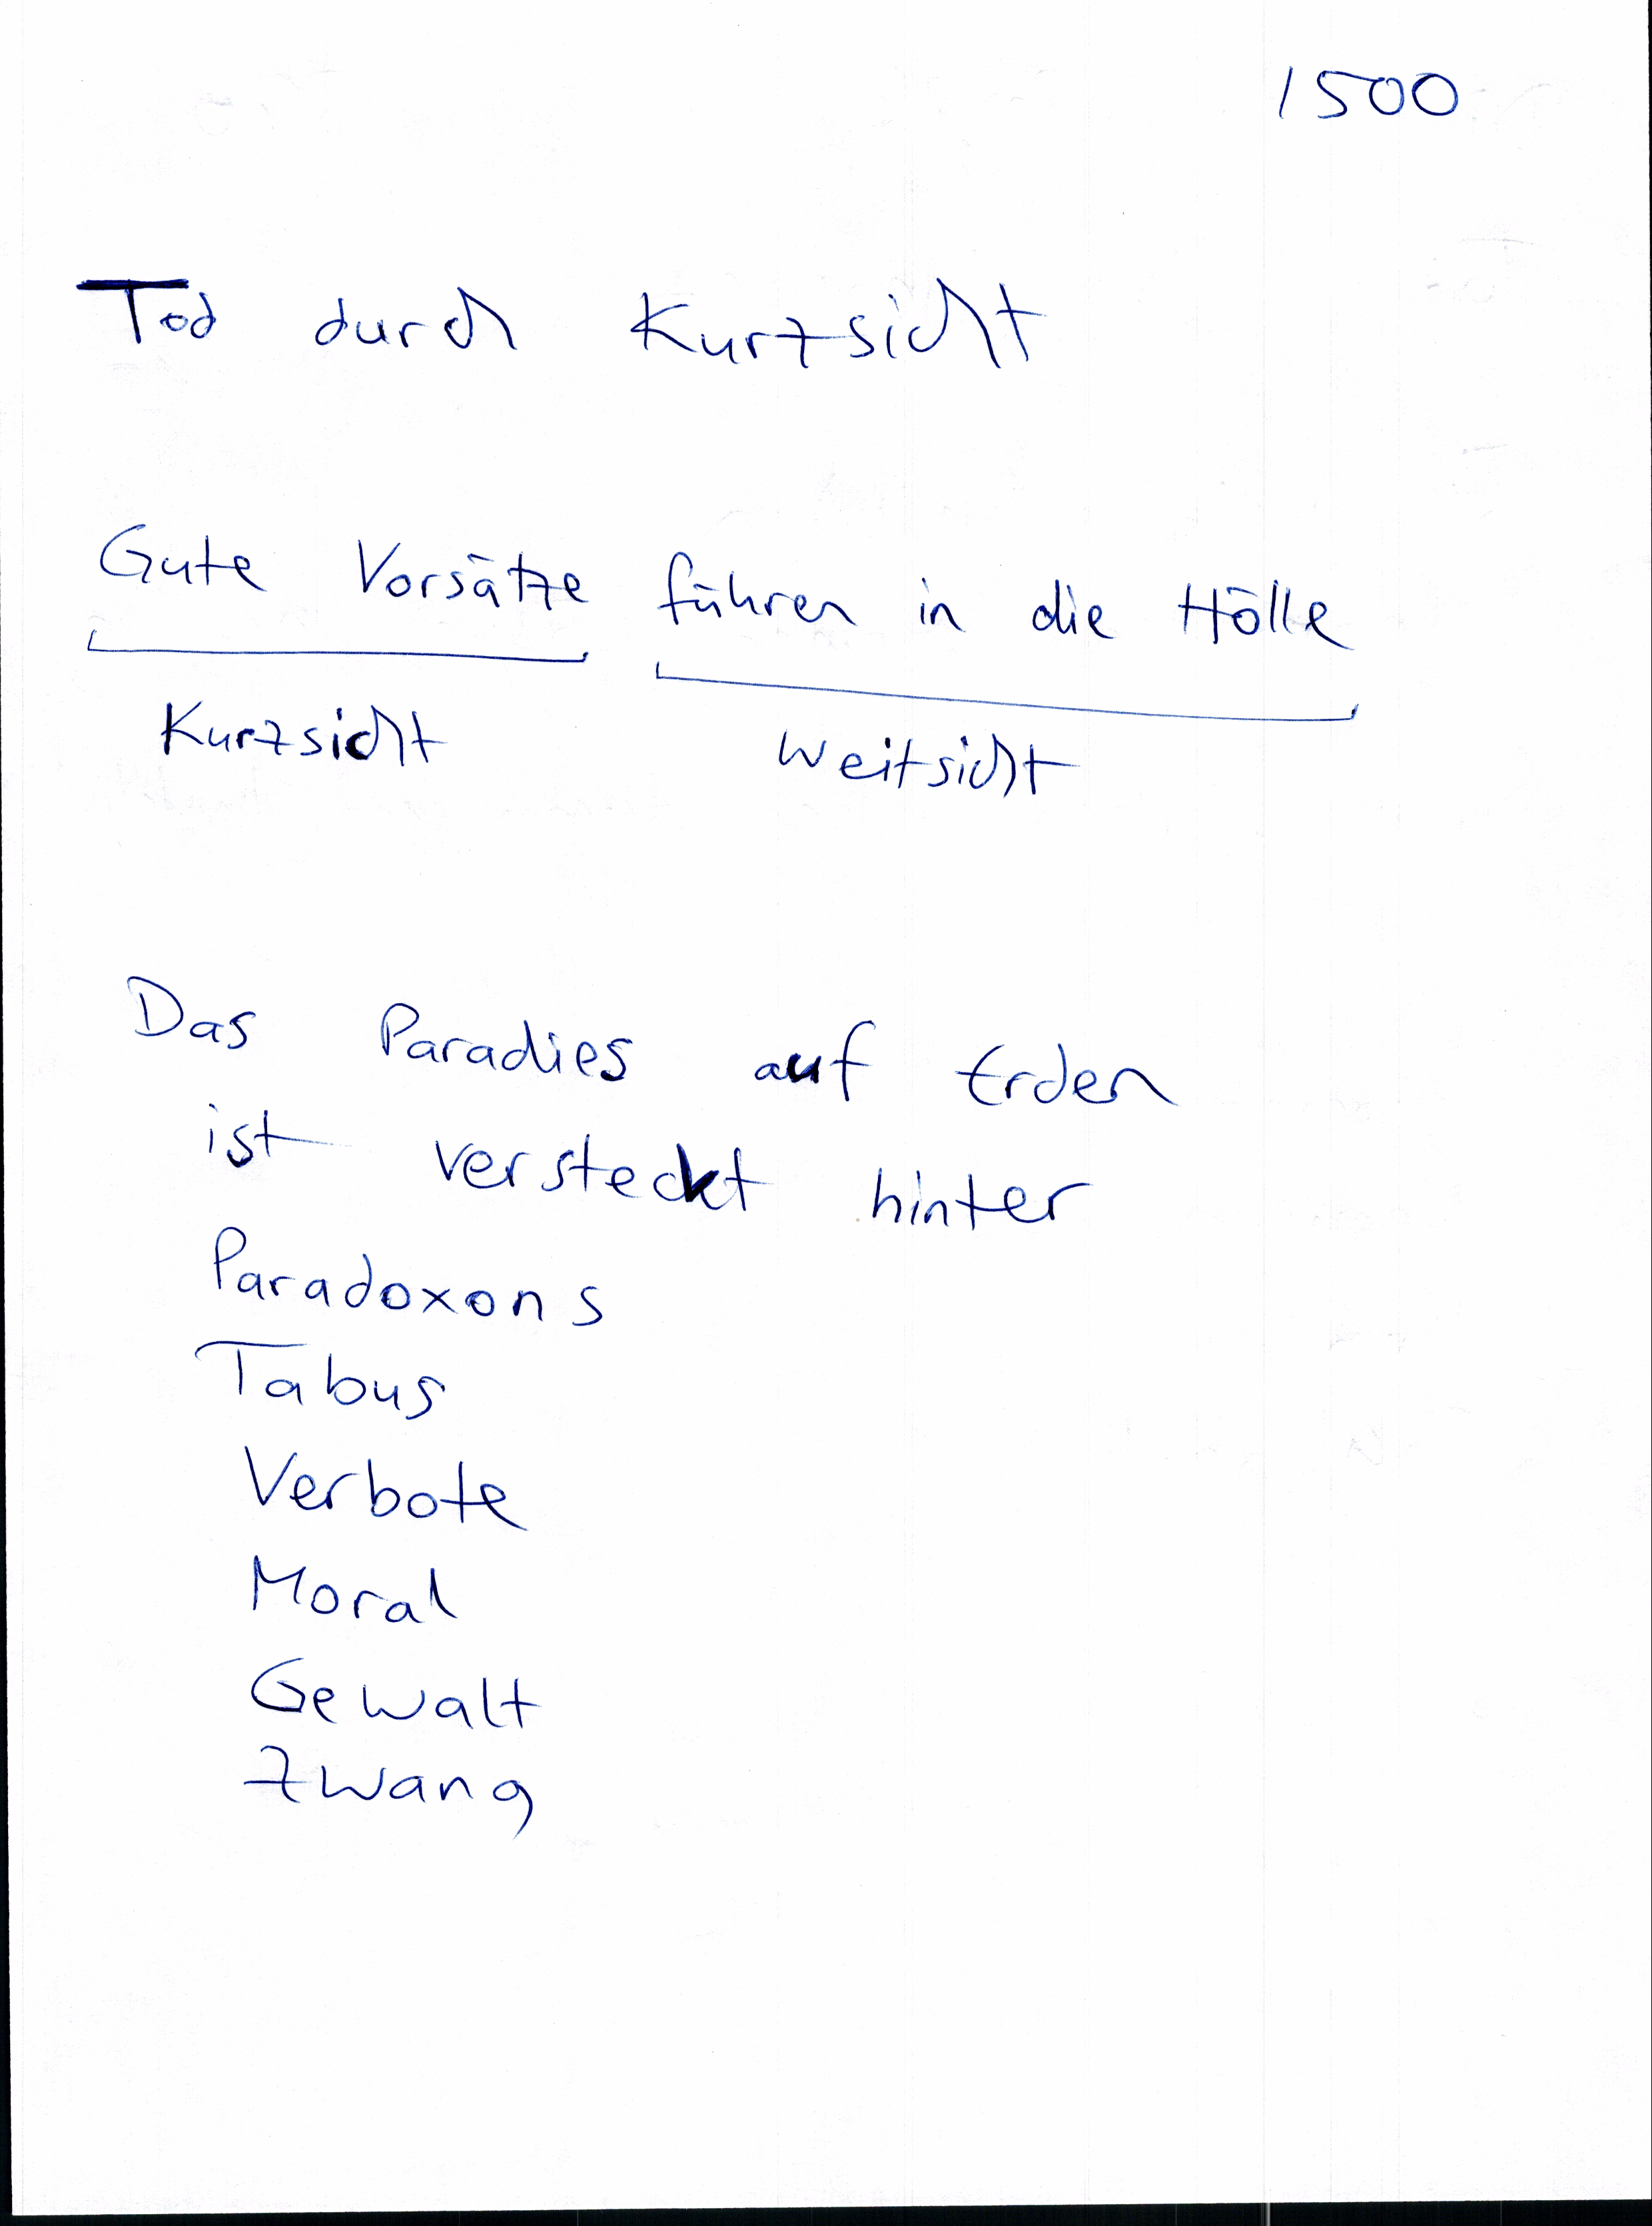 1500
Tod durch Kurzsicht
Gute Vorsätze führen in die Hölle
Kurzsicht Weitsicht
Das Paradies auf Erden
ist versteckt hinter
Paradoxons
Tabus
Verbote
Moral
Gewalt
Zwang